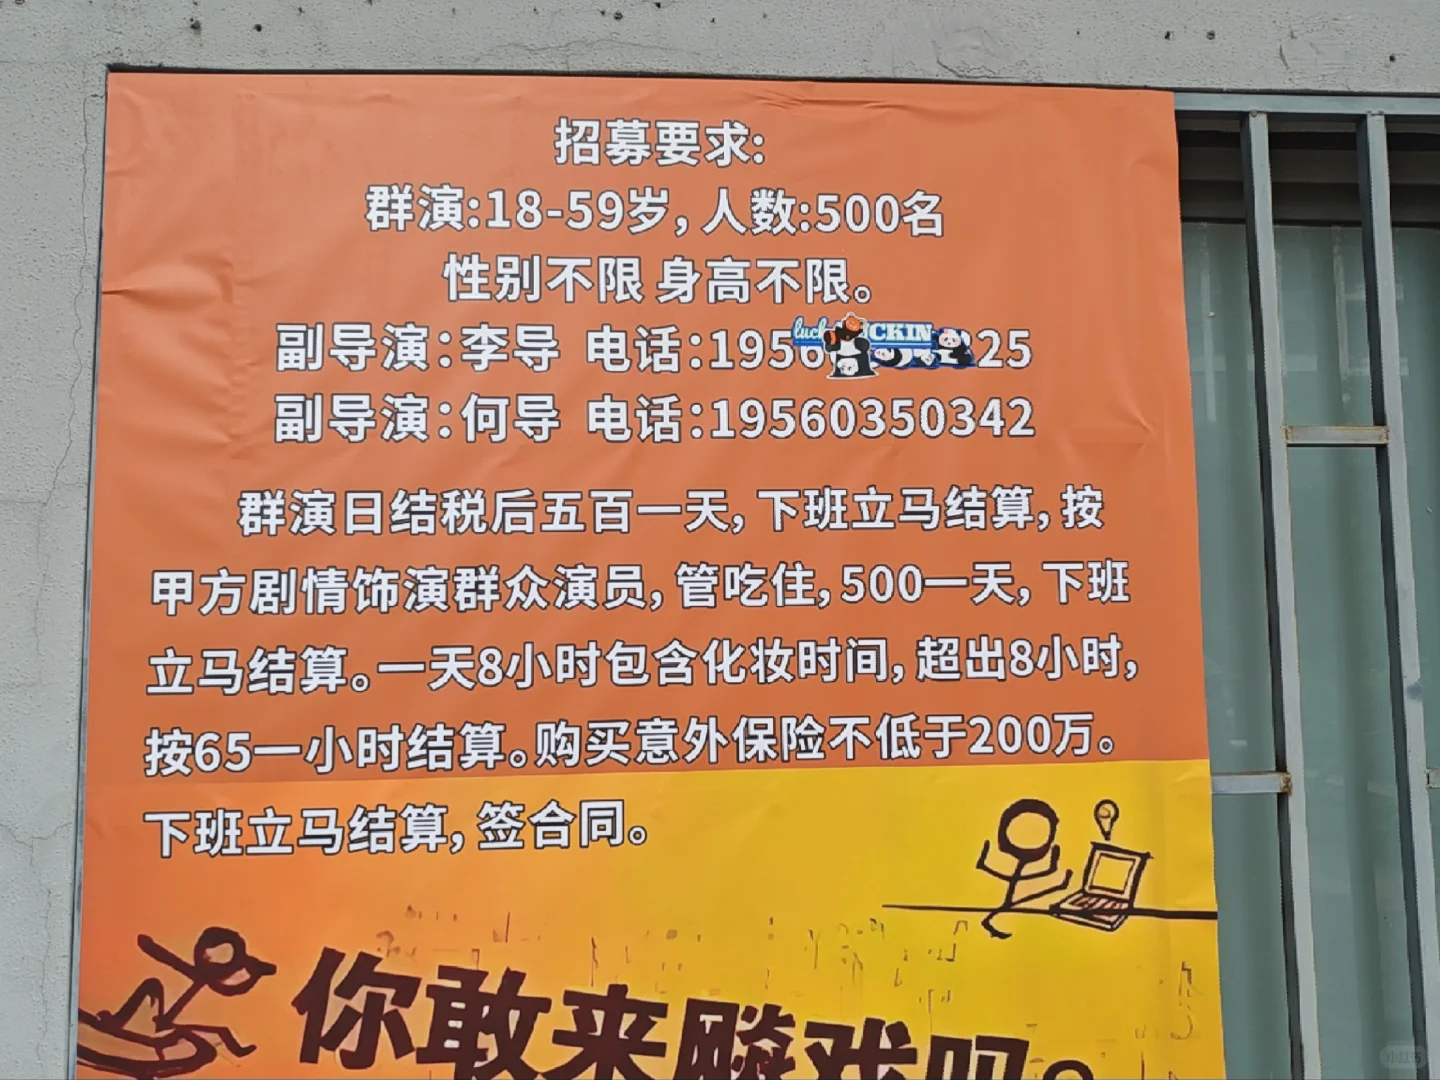 招募要求:
群演:18-59岁,人数:500名
性别不限 身高不限。
副导演:李导 电话:1956 25
副导演:何导 电话:19560350342
群演日结税后五百一天,下班立马结算,按
甲方剧情饰演群众演员,管吃住,500一天,下班
立马结算。一天8小时包含化妆时间,超出8小时,
按65一小时结算。购买意外保险不低于200万。
下班立马结算,签合同。
你敢来飚戏吗?
小红书